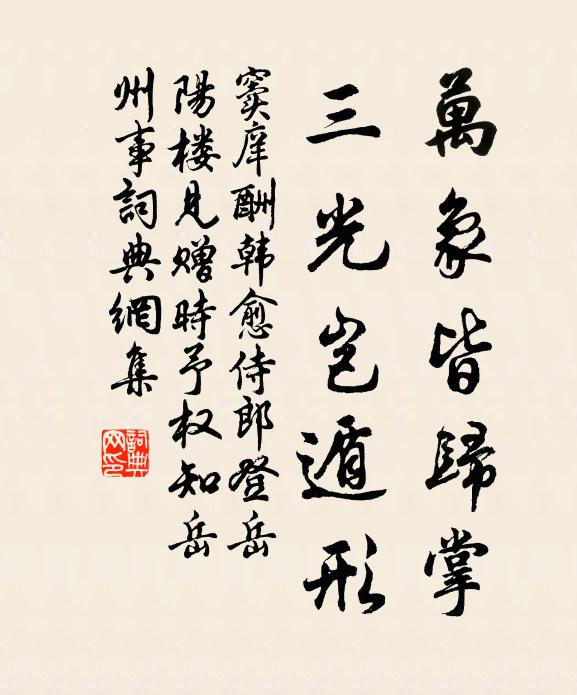 萬象皆歸掌
三光岂遁形
窦庠酬韩愈侍郎登岳
陽楼見赠時予权知岳
州事詞典網集
詞典
网印